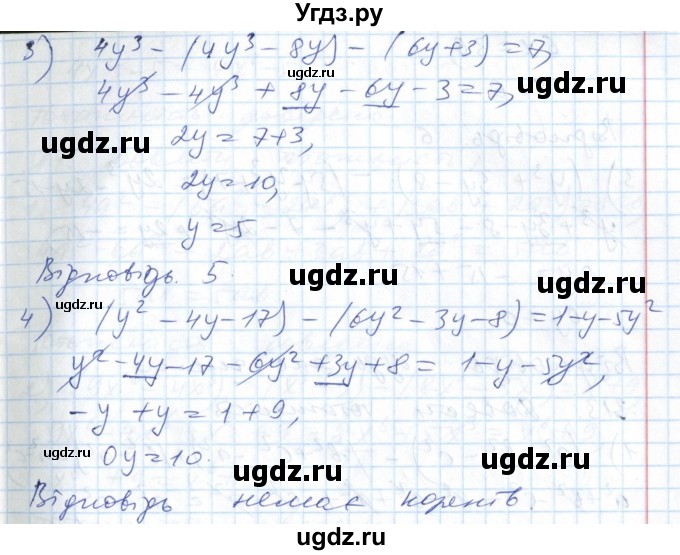 Угдз.ру
3) 4y³ - (4y³ - 8y) - (6y+3) = 7,
ugdz.ru
4y³ - 4y³ + 8y - 6y - 3 = 7,
ugdz.ru ugdz.ru
2y = 7+3,
ugdz.ru
2y = 10,
y = 5
Відповідь. 5.
ugdz.ru ugdz.ru
4) (y² - 4y - 17) - (6y² - 3y - 8) = 1 - y - 5y²
ugdz.ru
y² - 4y - 17 - 6y² + 3y + 8 = 1 - y - 5y²,
ugdz.ru
-y + y = 1 + 9,
ugdz.ru
0y = 10.
ugdz.ru ugdz.ru
Відповідь немає коренів.
ugdz.ru